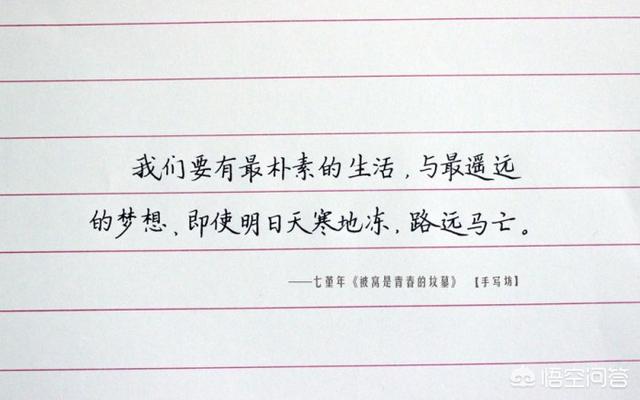 我们要有最朴素的生活,与最遥远
的梦想、即使明日天寒地冻,路远马亡。
——七堇年《被窝是青春的坟墓》 【手写坊】
悟空问答